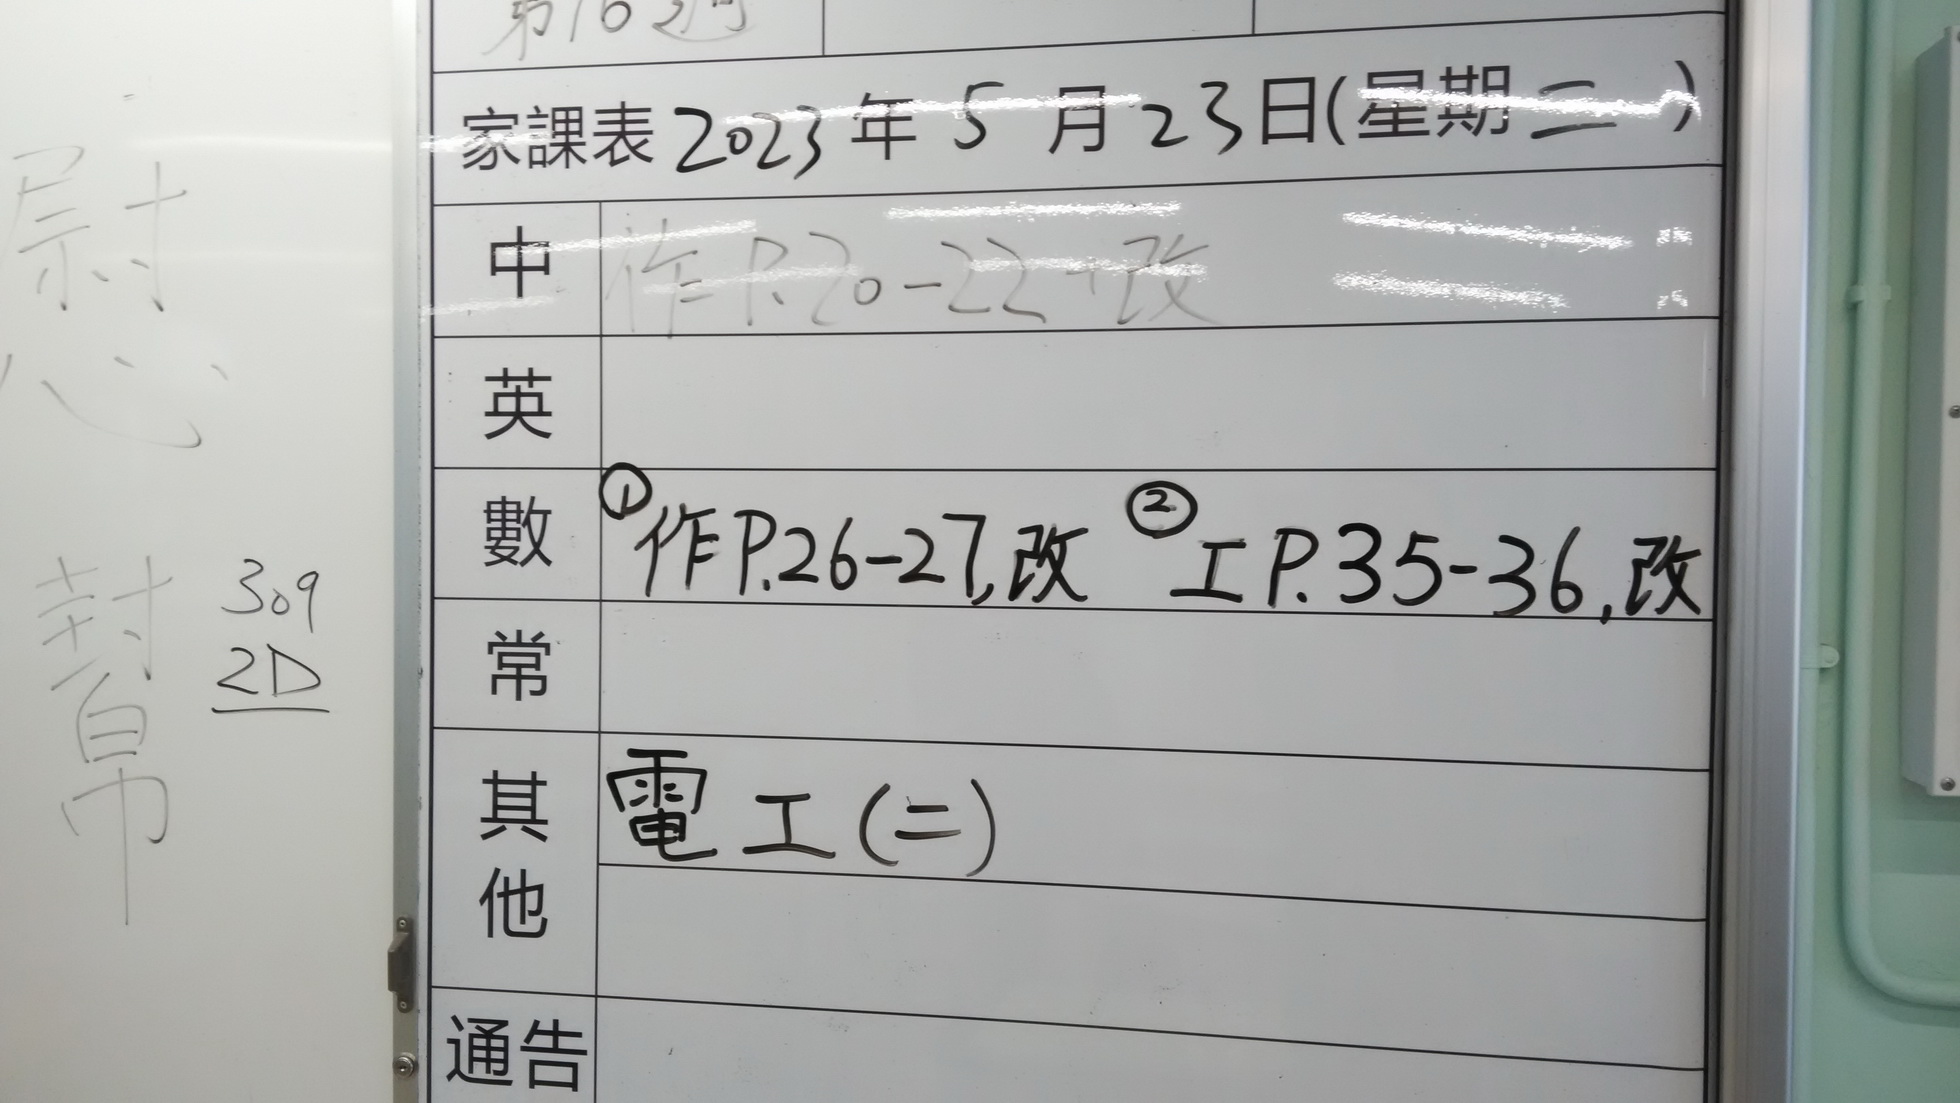 第16週
家課表 2023年5月23日(星期二)
中 作P.20-22+改
英
數 ①作P.26-27,改 ②工P.35-36,改
常
其他 電工(二)
通告
慰
幫
309
2D